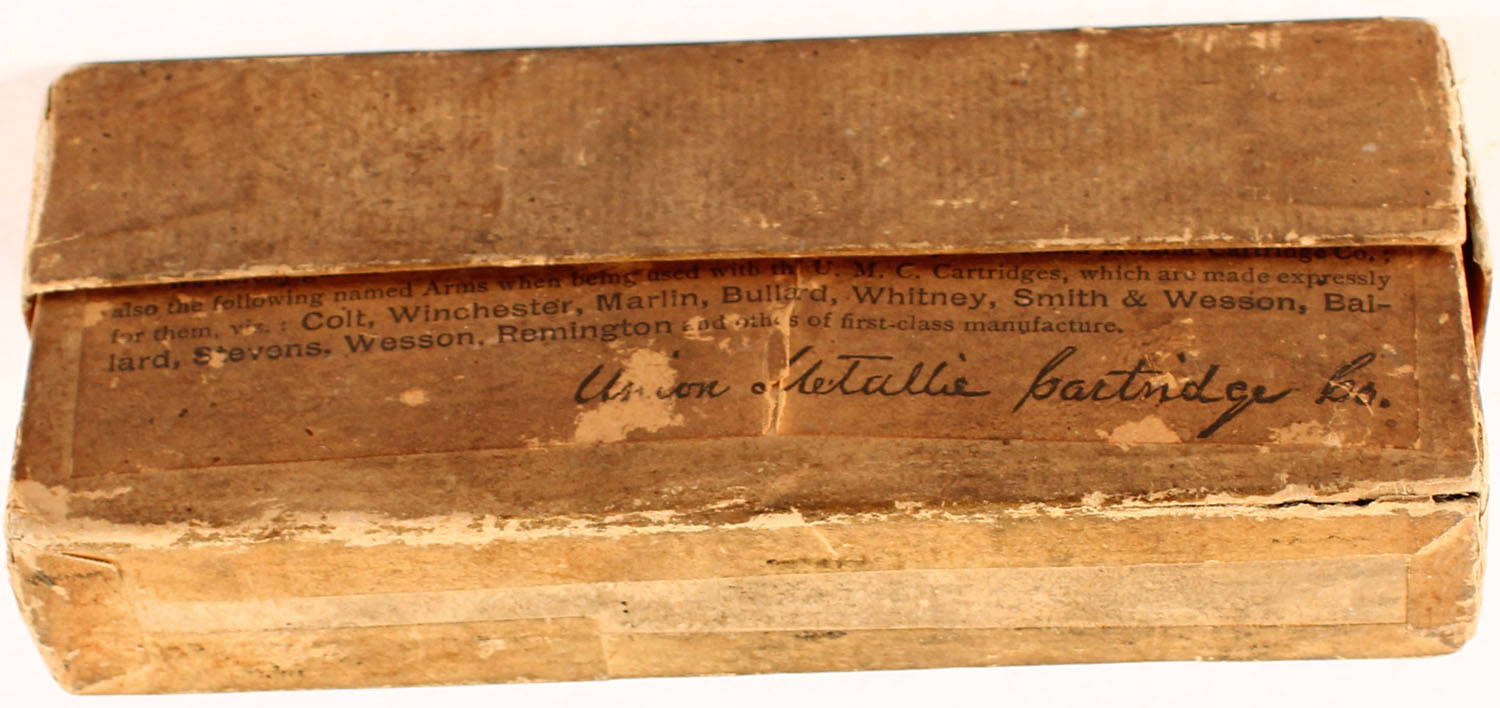 Cartridge Co.;
also the following named Arms when being used with the U. M. C. Cartridges, which are made expressly
for them, viz.: Colt, Winchester, Marlin, Bullard, Whitney, Smith & Wesson, Bal-
lard, Stevens, Wesson, Remington and others of first-class manufacture.
Union Metallic Cartridge Co.